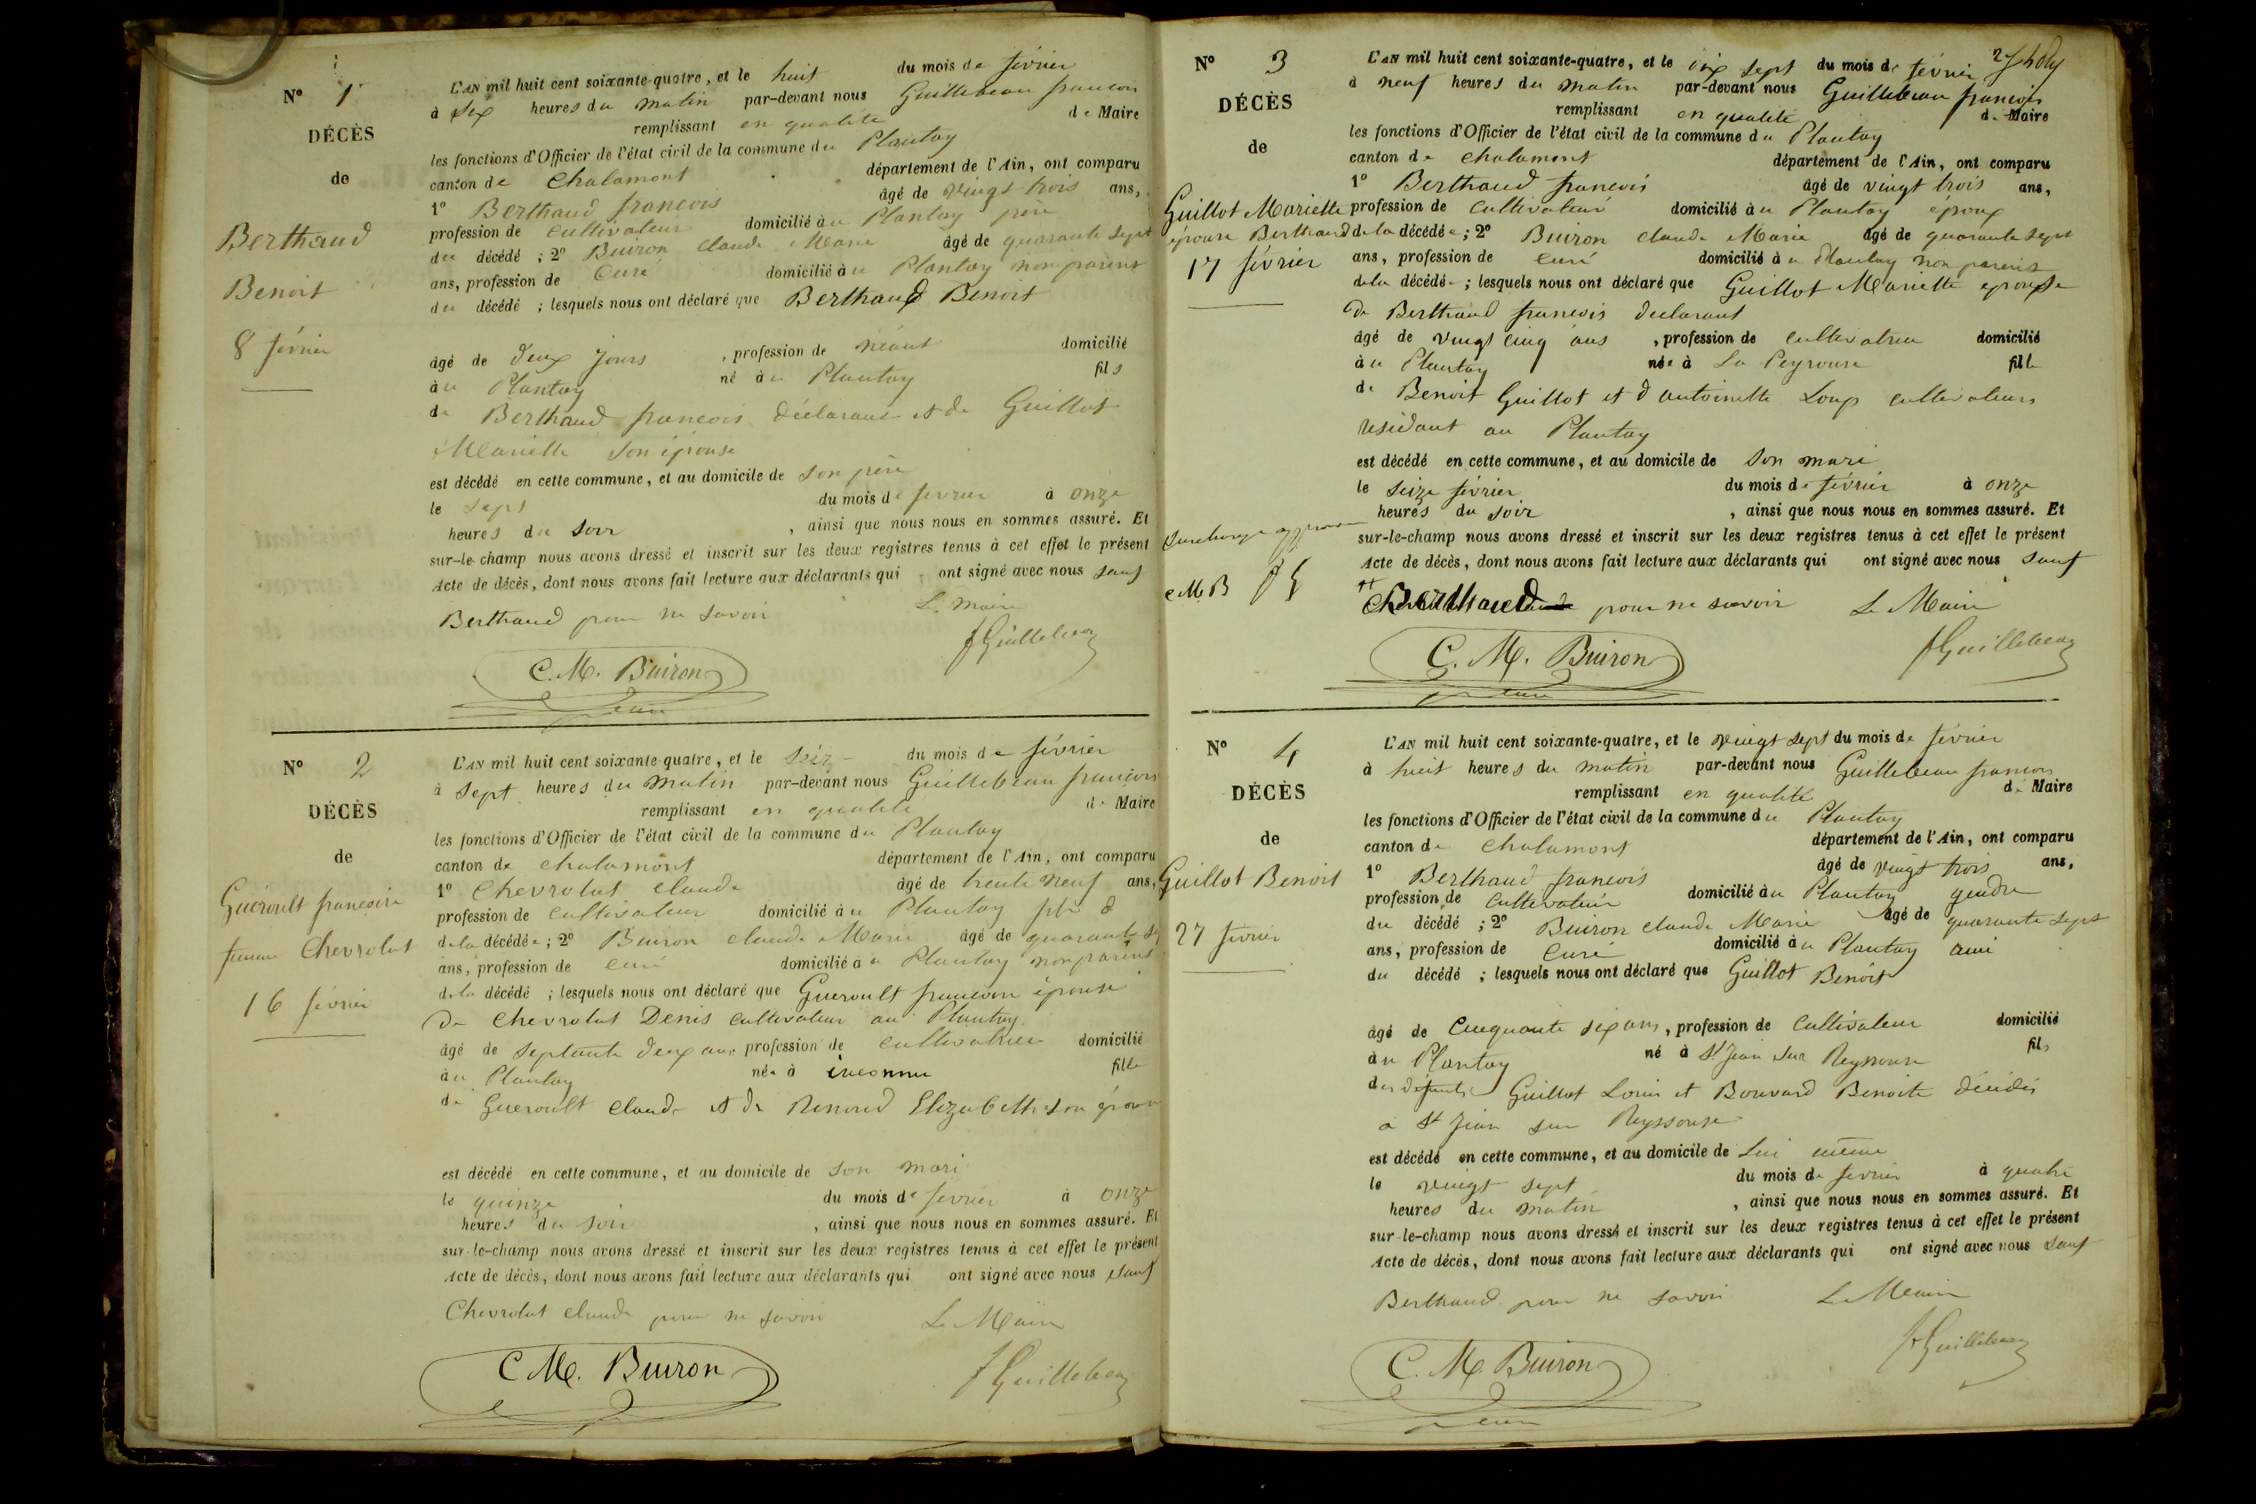 N° 1
DÉCÈS
de
Berthaud
Benoit
8 février
L'AN mil huit cent soixante-quatre, et le huit du mois de février
à six heures du matin par-devant nous Guillebeau françois
remplissant en qualité de Maire
les fonctions d'Officier de l'état civil de la commune du Plantay
canton de Chalamont département de l'Ain, ont comparu
1° Berthaud françois âgé de vingt trois ans,
profession de cultivateur domicilié au Plantay père
du décédé ; 2° Buiron claude Marie âgé de quarante sept
ans, profession de Curé domicilié au Plantay non parent
du décédé ; lesquels nous ont déclaré que Berthaud Benoit
âgé de deux jours , profession de néant domicilié
au Plantay né au Plantay fils
de Berthaud françois déclarant et de Guillot
Mariette son épouse
est décédé en cette commune, et au domicile de son père
le sept du mois de février à onze
heures du soir , ainsi que nous nous en sommes assuré. Et
sur-le-champ nous avons dressé et inscrit sur les deux registres tenus à cet effet le présent
Acte de décès, dont nous avons fait lecture aux déclarants qui ont signé avec nous sauf
Berthaud pour ne savoir Le Maire
C. M. Buiron f Guillebeau
curé
N° 2
DÉCÈS
de
Gueroult francoise
femme Chevrolat
16 février
L'AN mil huit cent soixante-quatre, et le seize du mois de février
à sept heures du matin par-devant nous Guillebeau françois
remplissant en qualité de Maire
les fonctions d'Officier de l'état civil de la commune du Plantay
canton de chalamont département de l'Ain, ont comparu
1° Chevrolat claude âgé de trente neuf ans,
profession de cultivateur domicilié au Plantay fils
de la décédée ; 2° Buiron claude Marie âgé de quarante
ans, profession de curé domicilié au Plantay non parent
de la décédé ; lesquels nous ont déclaré que Gueroult francoise épouse
De Chevrolat Denis cultivateur au Plantay
âgé de septante deux ans profession de cultivatrice domicilié
au Plantay née à inconnu fille
de Gueroult claude et de Renoud Elizabeth son épouse
est décédé en cette commune, et au domicile de son mari
le quinze du mois de février à onze
heures du soir , ainsi que nous nous en sommes assuré. Et
sur-le-champ nous avons dressé et inscrit sur les deux registres tenus à cet effet le présent
Acte de décès, dont nous avons fait lecture aux déclarants qui ont signé avec nous sauf
Chevrolat claude pour ne savoir Le Maire
C M. Buiron f Guillebeau
N° 3
DÉCÈS
de
Guillot Mariette
épouse Berthaud
17 février
L'AN mil huit cent soixante-quatre, et le dix sept du mois de février
à neuf heures du matin par-devant nous Guillebeau françois
remplissant en qualité de Maire
les fonctions d'Officier de l'état civil de la commune du Plantay
canton de chalamont département de l'Ain, ont comparu
1° Berthaud francois âgé de vingt trois ans,
profession de cultivateur domicilié au Plantay époux
de la décédée ; 2° Buiron claude Marie âgé de quarante sept
ans, profession de curé domicilié au Plantay non parent
de la décédée ; lesquels nous ont déclaré que Guillot Mariette epouse
De Berthaud francois declarant
âgé de vingt cinq ans , profession de cultivatrice domicilié
au Plantay née à La Peyrouse fille
de Benoit Guillot et d'antoinette Loup cultivateurs
résidant au Plantay
est décédé en cette commune, et au domicile de son mari
le seize février du mois de février à onze
heures du soir , ainsi que nous nous en sommes assuré. Et
sur-le-champ nous avons dressé et inscrit sur les deux registres tenus à cet effet le présent
Acte de décès, dont nous avons fait lecture aux déclarants qui ont signé avec nous sauf
surcharge approuvée
c M. B f G
Berthaud pour ne savoir Le Maire
C. M. Buiron f Guillebeau
curé
N° 4
DÉCÈS
de
Guillot Benoit
27 février
L'AN mil huit cent soixante-quatre, et le vingt sept du mois de février
à huit heures du matin par-devant nous Guillebeau francois
remplissant en qualité de Maire
les fonctions d'Officier de l'état civil de la commune du Plantay
canton de Chalamont département de l'Ain, ont comparu
1° Berthaud francois âgé de vingt trois ans,
profession de cultivateur domicilié au Plantay gendre
du décédé ; 2° Buiron claude Marie âgé de quarante sept
ans, profession de Curé domicilié au Plantay ami
du décédé ; lesquels nous ont déclaré que Guillot Benoit
âgé de cinquante six ans, profession de cultivateur domicilié
au Plantay né à St Jean sur Reyssouse fils
des défunts Guillot Louis et Bouvard Benoite décédés
a St Jean sur Reyssouse
est décédé en cette commune, et au domicile de Lui même
le vingt sept du mois de février à quatre
heures du matin , ainsi que nous nous en sommes assuré. Et
sur-le-champ nous avons dressé et inscrit sur les deux registres tenus à cet effet le présent
Acte de décès, dont nous avons fait lecture aux déclarants qui ont signé avec nous sauf
Berthaud pour ne savoir Le Maire
C. M. Buiron f Guillebeau
curé